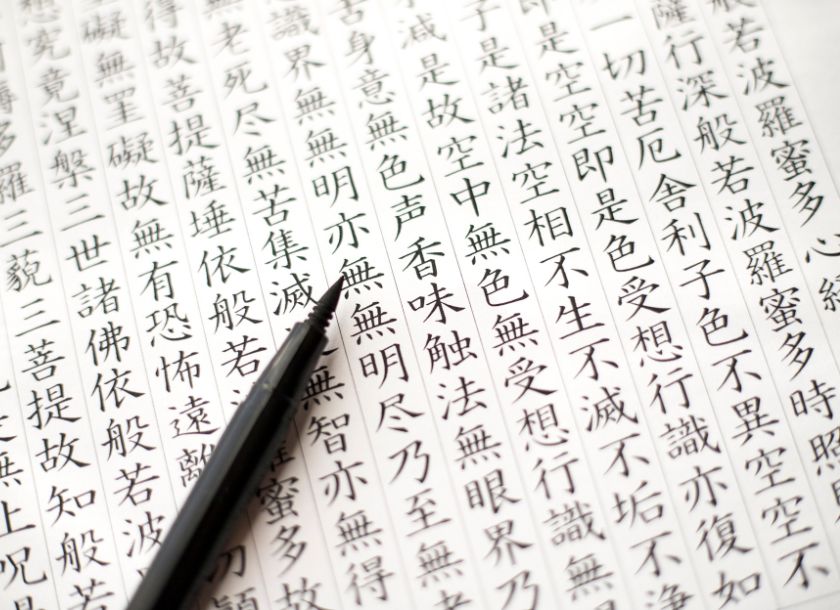 般若波羅蜜多心経
薩行深般若波羅蜜多時照
一切苦厄舎利子色不異空空不
即是空空即是色受想行識亦復如
子是諸法空相不生不滅不垢不浄
減是故空中無色無受想行識無
舌身意無色声香味触法無眼界乃
意識界無無明亦無無明尽乃至無老
無老死尽無苦集滅無智亦無得
得故菩提薩埵依般若蜜多故
礙無罣礙故無有恐怖遠離切顛
想究竟涅槃三世諸佛依般若波
多羅三藐三菩提故知般若
無上呪是